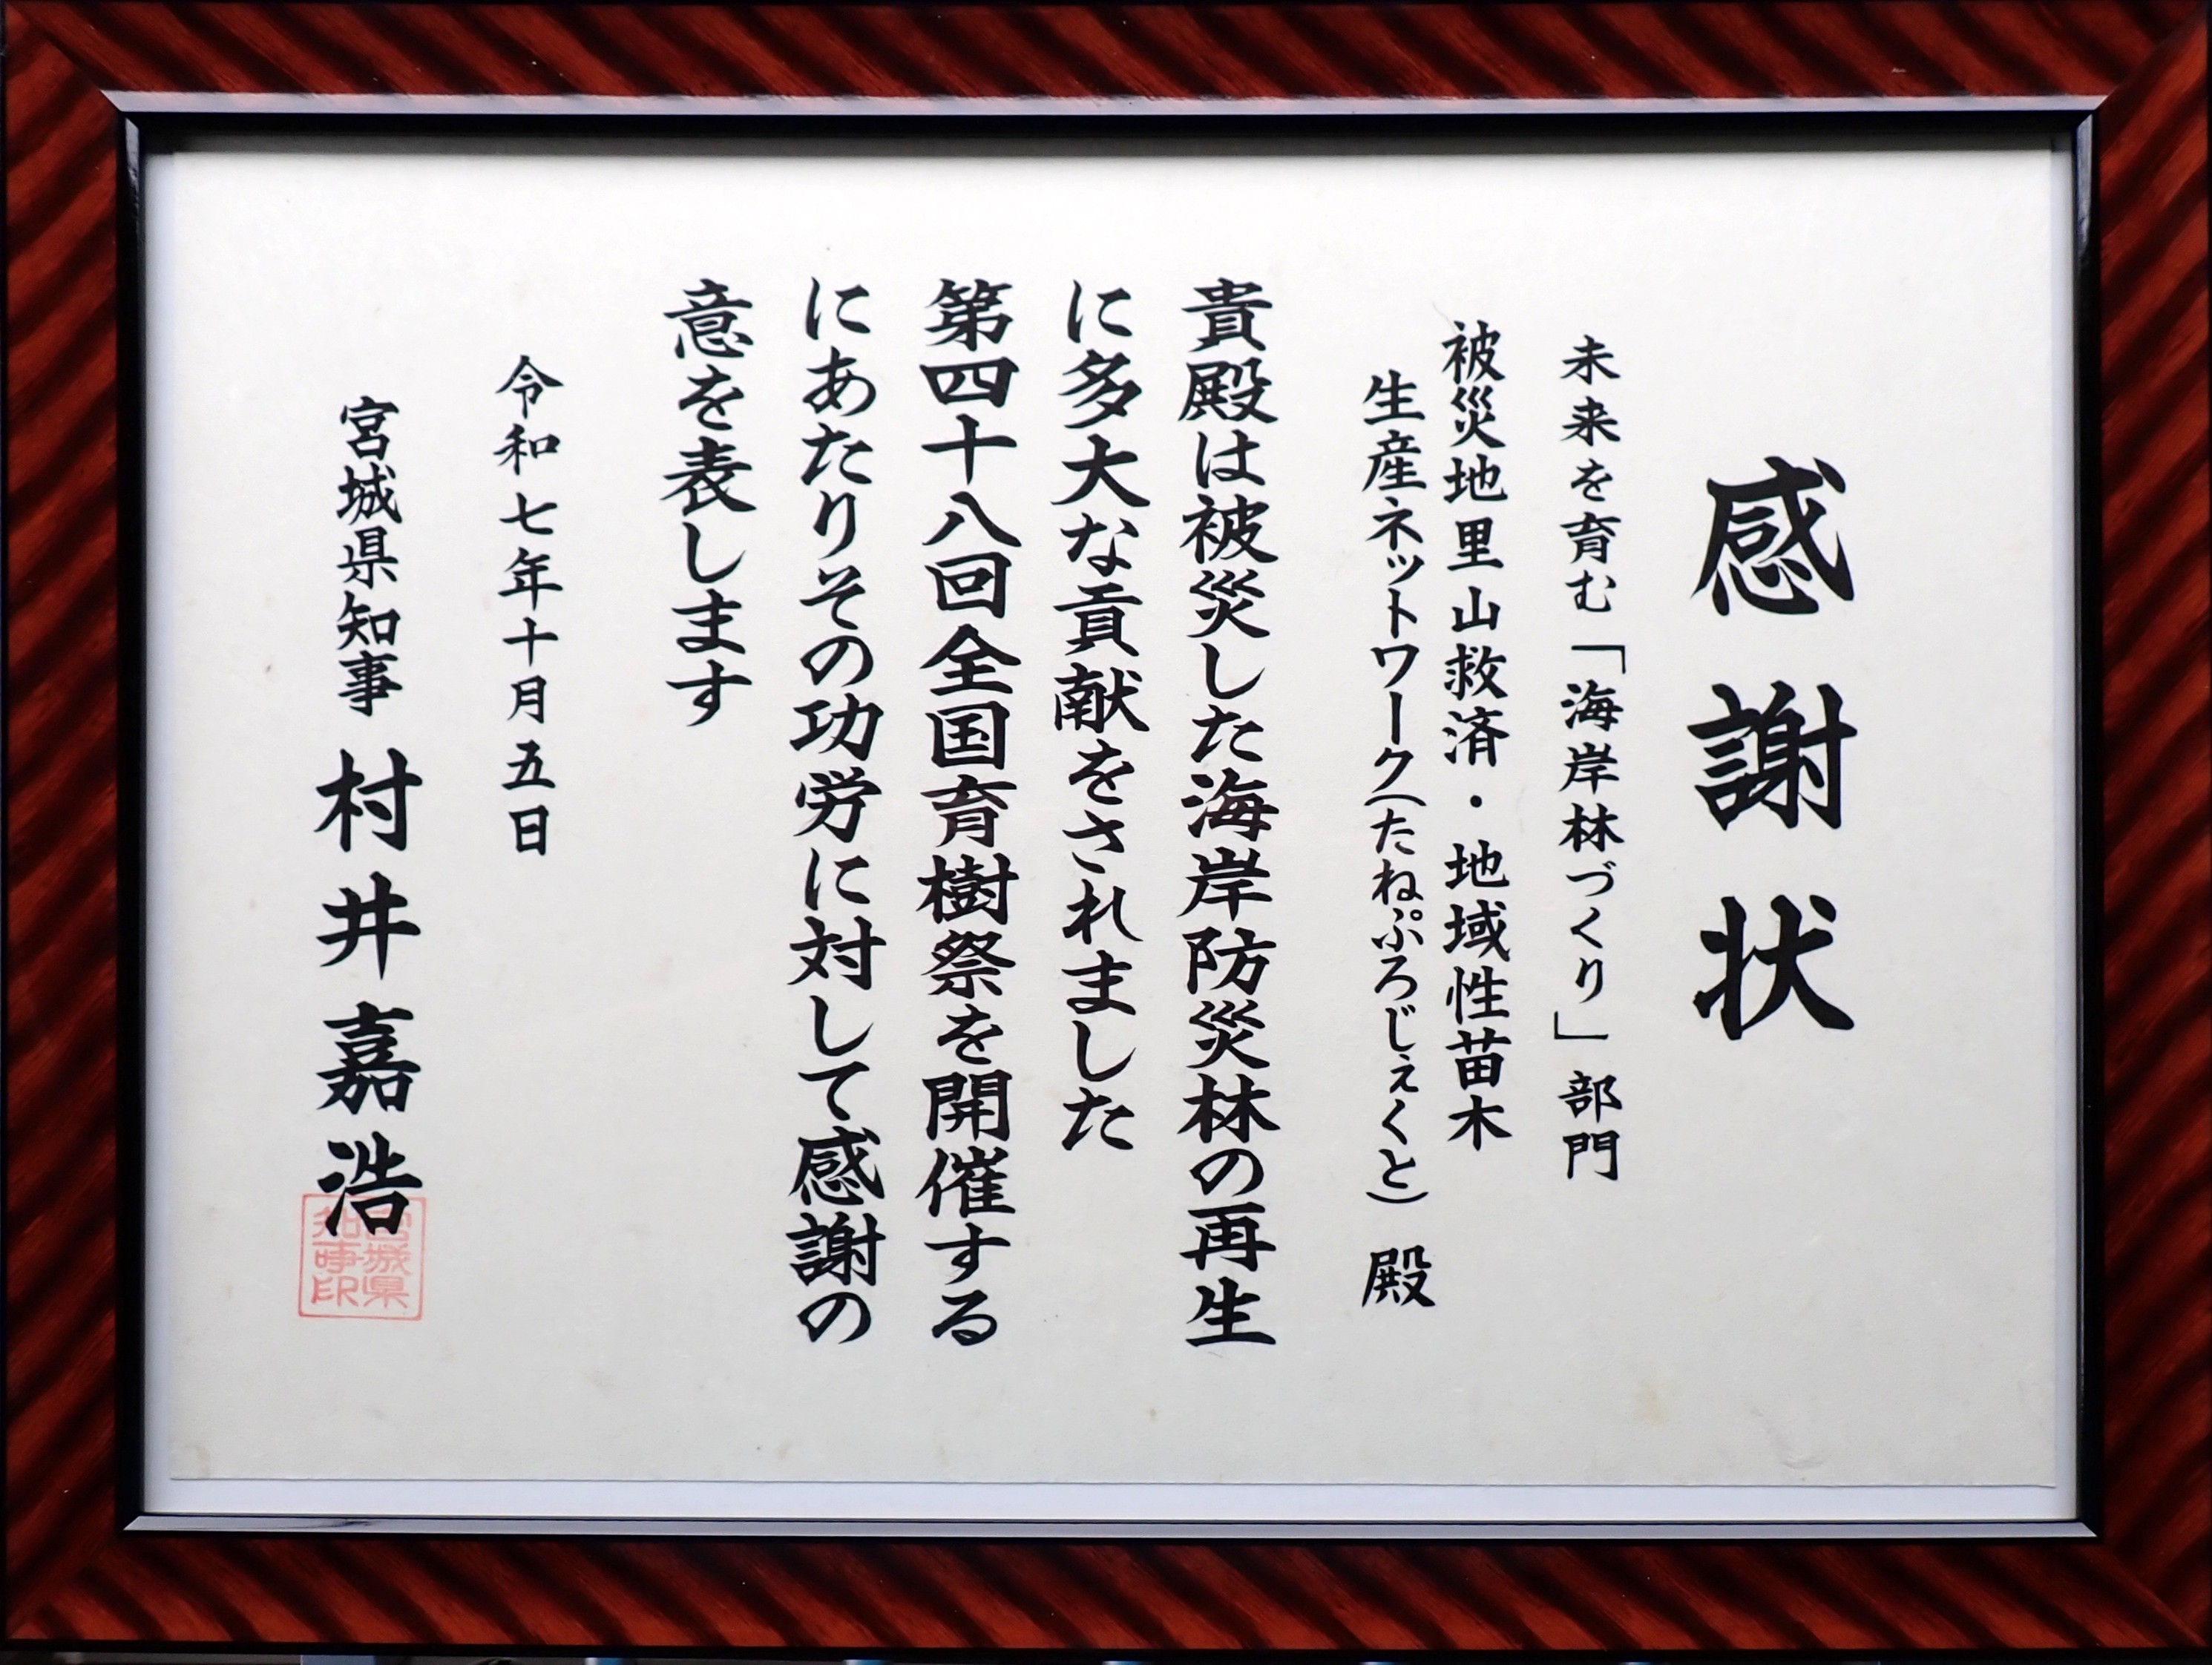 感謝状
未来を育む「海岸林づくり」部門
被災地里山救済・地域性苗木
生産ネットワーク(たねぷろじぇくと) 殿
貴殿は被災した海岸防災林の再生
に多大な貢献をされました
第四十八回全国育樹祭を開催する
にあたりその功労に対して感謝の
意を表します
令和七年十月五日
宮城県知事 村井嘉浩
宮城県
知事印